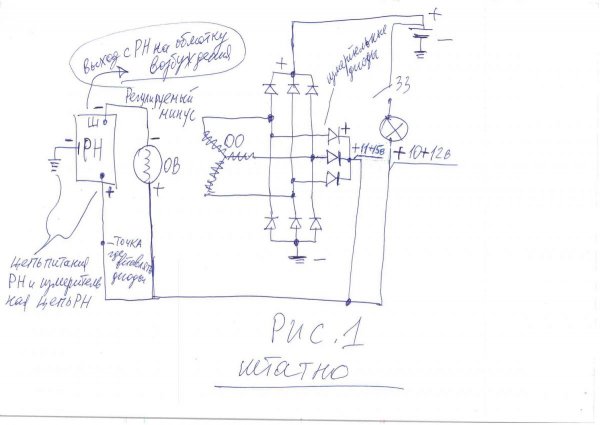 выход с РН на обмотку
возбуждения
Регулируемый
минус
Ш
РН
ОВ
ОО
измерительные
диоды
ЗЗ
+11+15в
+10+12в
точка
где
вставлять
диоды
цепь питания
РН и измеритель
ная цепь РН
Рис. 1
штатно